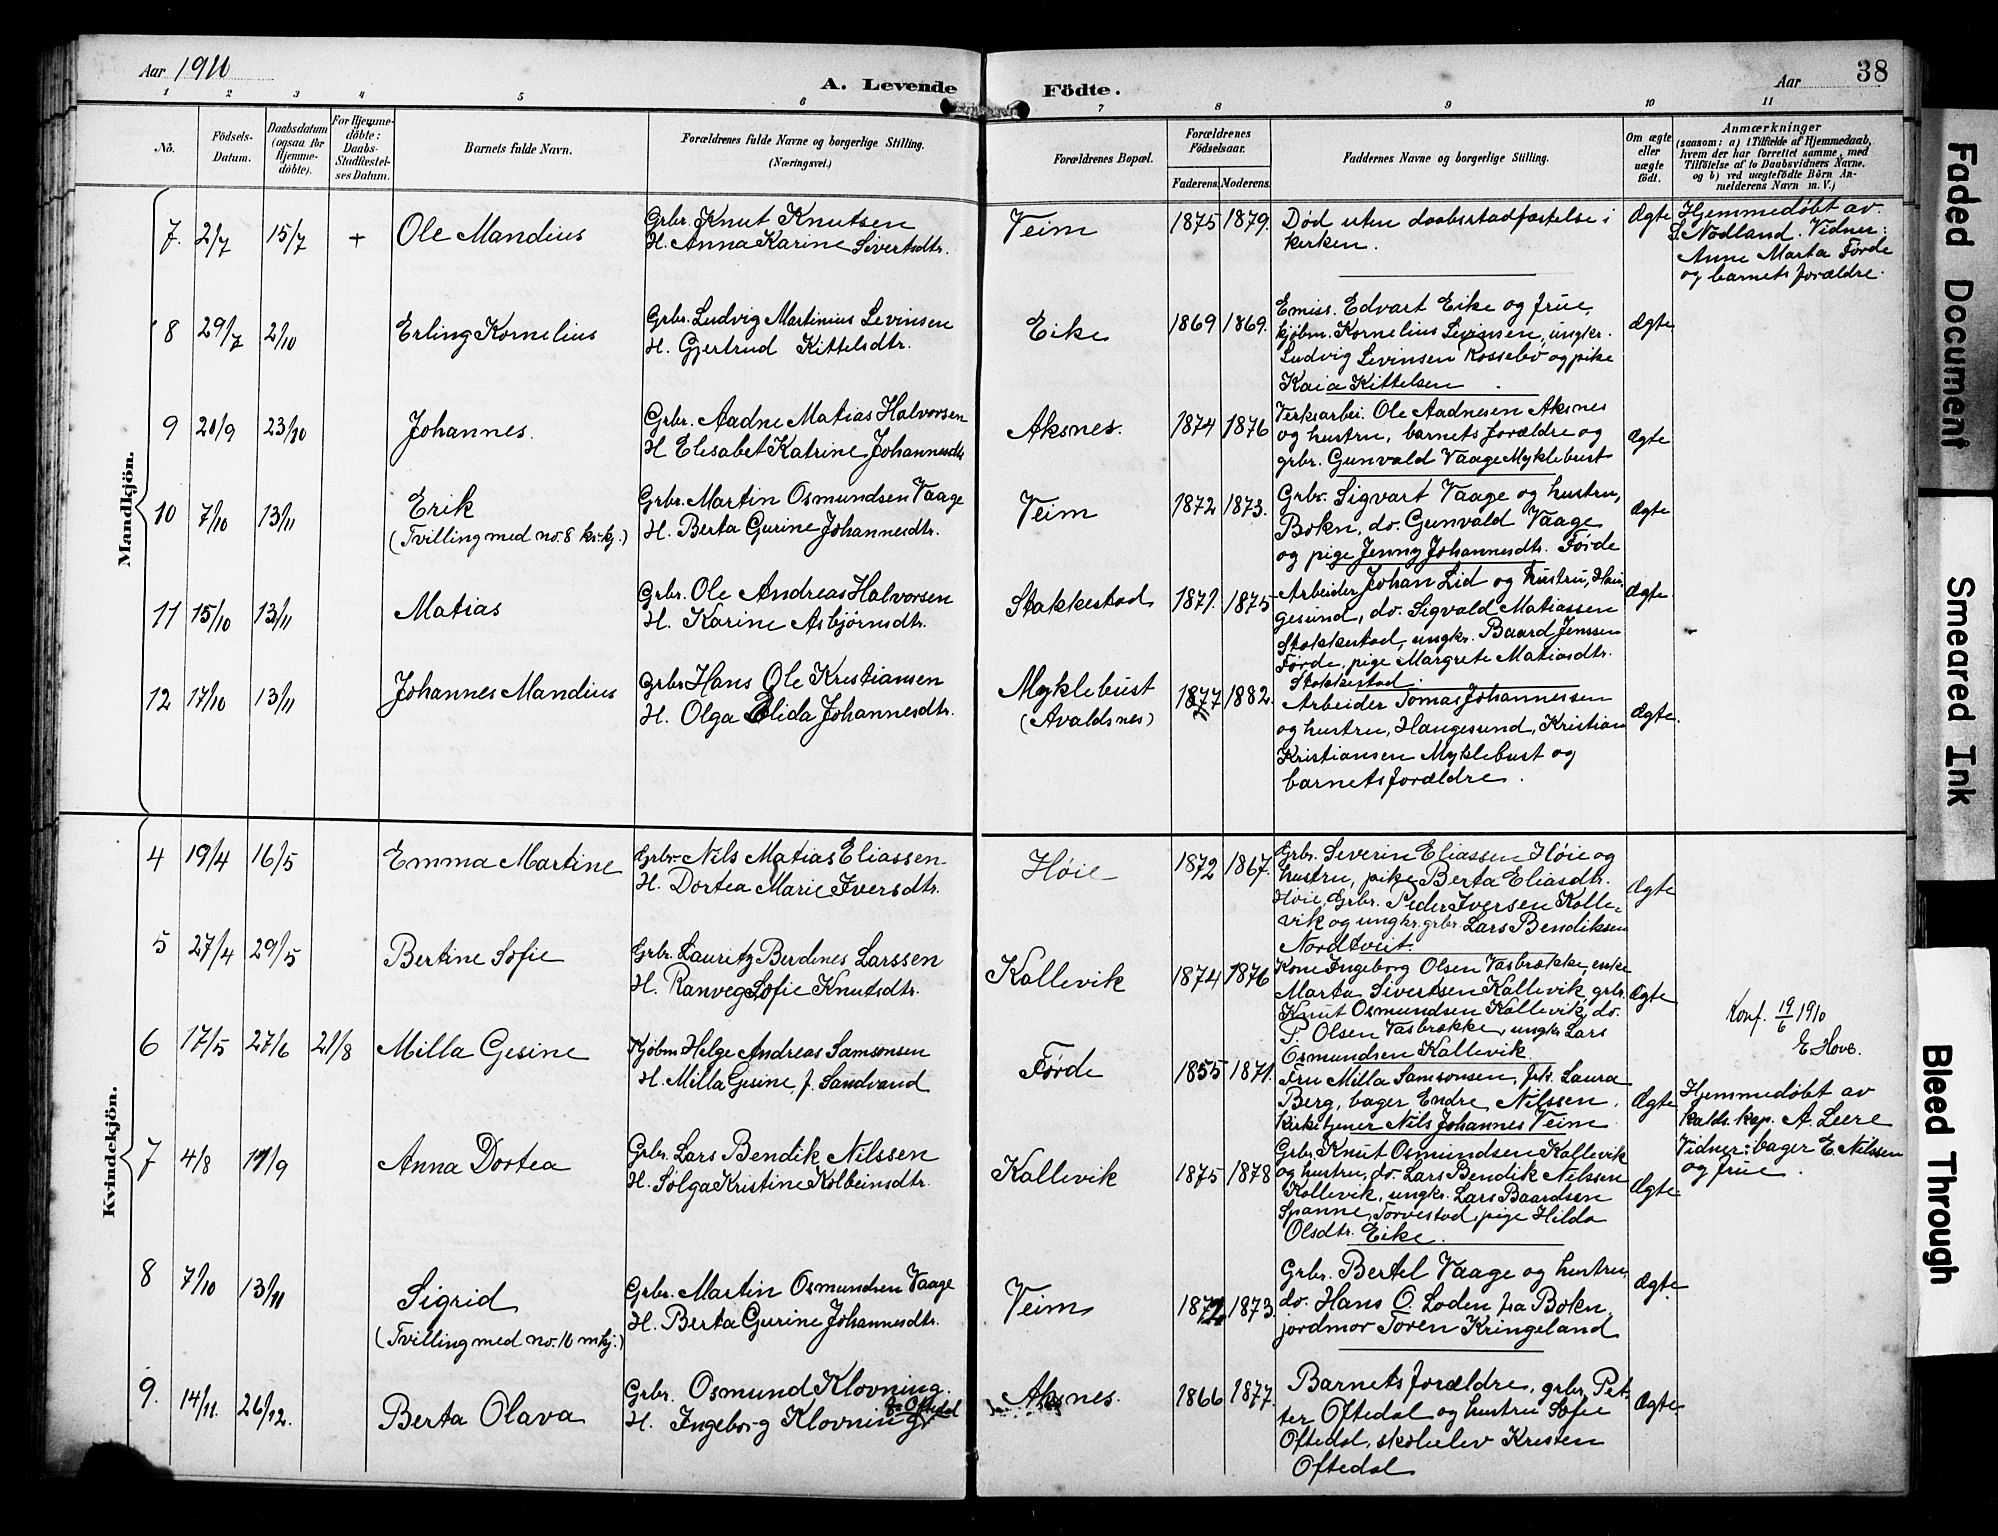 Aar 1910
A. Levende Födte.
Aar
38
1 2 3 4 5 6 7 8 9 10 11
No.
Födsels-Datum.
Daabsdatum (ogsaa for Hjemme-døbte).
For Hjemme-døbte: Daabs-Stadfæstel-ses Datum.
Barnets fulde Navn.
Forældrenes fulde Navne og borgerlige Stilling.
(Næringsvei.)
Forældrenes Bopæl.
Forældrenes Födselsaar.
Faderens. Moderens.
Faddernes Navne og borgerlige Stilling.
Om ægte eller uægte födt.
Anmærkninger
(saasom: a) i Tilfælde af Hjemmedaab, hvem der har forrettet samme, med Tilföielse af to Daabsvidners Navne, og b) ved uægtefödte Börn An-melderens Navn m. V.)
Mandkjön.
7. 2/7 15/7 + Ole Mandius
Grbr. Knut Knutsen
H. Anna Karine Sivertsdtr.
Veim 1875 1879.
Död uten daabsstadfæstelse i
kirken.
Ægte
Hjemmedøbt av
S. Nødland. Vidner:
Anne Marta Førde
og barnets forældre.
8 29/7 2/10 Erling Kornelius
Grbr. Ludvig Martinius Levinsen
H. Gjertrud Kittelsdtr.
Eike 1869 1869.
Emiss. Edvart Eike og frue,
kjøbm. Kornelius Levinsen, ungkr.
Ludvig Levinsen Rossebø og pike
Kaia Kittelsen
Ægte
9 20/9 23/10 Johannes.
Grbr. Aadne Matias Halvorsen
H Elisabet Katrine Johannesdtr
Aksnes. 1874 1876
Verksarbei. Ole Aadnesen Aksnes
og hustru, barnets forældre og
grbr. Gunvald Vaage Myklebust
Ægte
10 7/10 13/11 Erik
(Tvilling med no. 8 kv.kj.)
Grbr. Martin Osmundsen Vaage
H. Berta Gurine Johannesdtr.
Veim 1872 1873.
Grbr. Sigvart Vaage og hustru,
Bokn, do. Gunvald Vaage
og pige Jenny Johannesdtr. Førde
Ægte
11 15/10 13/11 Matias
Grbr. Ole Andreas Halvorsen
H. Karine Asbjørnsdtr.
Stakkestad 1871. 1875
Arbeider Johan Lid og hustru, Hau-
gesund, do. Sigvald Matiassen
Stakkestad, ungkr. Baard Jenssen
Førde, pige Margrete Matiasdtr.
Stakkestad.
Ægte
12 17/10 13/11 Johannes Mandius
Grbr Hans Ole Kristiansen
H. Olga Elida Johannesdtr.
Myklebust
(Avaldsnes)
1877 1882.
Arbeider Tomas Johannessen
og hustru, Haugesund, Kristian
Kristiansen Myklebust og
barnets forældre.
Ægte.
Kvindekjön.
4 19/4 16/5 Emma Martine
Grbr. Nils Matias Eliassen
H. Dortea Marie Iversdtr.
Høie 1872 1867.
Grbr. Severin Eliassen Høie og
hustru, pike Berta Eliasdtr.
Høie, Grbr. Peder Iversen Kalle-
vik og ungkr. grbr. Lars Bendiksen
Nordtveit.
Ægte
5 27/4 29/5 Bertine Sofie
Grbr. Lauritz Berdines Larssen
H. Ranveg Sofie Knutsdtr.
Kallevik 1874 1876
Kone Ingeborg Olsen Vasbrække, enke
Marta Sivertsen Kallevik, grbr.
Knut Osmundsen Kallevik, do.
P. Olsen Vasbrække, ungkr Lars
Osmundsen Kallevik.
Ægte
Konf. 19/6 1910
E Hove.
6 17/5 27/6 21/8 Milla Gesine
Kjøbm Helge Andreas Samsonsen
H. Milla Gesine f. Sandvand
Førde 1855 1871.
Fru Milla Samsonsen, frk. Laura
Berg, bager Endre Nilssen,
kirketjener Nils Johannes Veim
Ægte
Hjemmedøbt av
kalds. kap. A. Leere
Vidner: bager E. Nilssen
og frue.
7 4/8 11/9 Anna Dortea
Grbr. Lars Bendik Nilssen
H. Solga Kristine Kolbeinsdtr.
Kallevik 1875 1878
Grbr. Knut Osmundsen Kallevik
og hustru, do. Lars Bendik Nilssen
Kallevik, ungkr. Lars Baardsen
Spanne, Torvestad, pige Hilda
Olsdtr. Eike.
Ægte
8 7/10 13/11 Sigrid
(Tvilling med no. 10 m.kj.)
Grbr. Martin Osmundsen Vaage
H. Berta Gurine Johannesdtr.
Veim 1872 1873
Grbr. Bertel Vaage og hustru,
do. Hans O. Loden fra Bokn,
jordmor Toren Kringeland
Ægte
9. 14/11. 26/12. Berta Olava
Grbr. Osmund Klovning.
f. Oftedal
H. Ingeborg Klovning
Aksnes. 1866 1877.
Barnets forældre, grbr. Pet-
ter Oftedal og hustru Sofie
Oftedal, skoleelev Kristen
Oftedal
Ægte.
Faded Document
Smeared Ink
Bleed Through